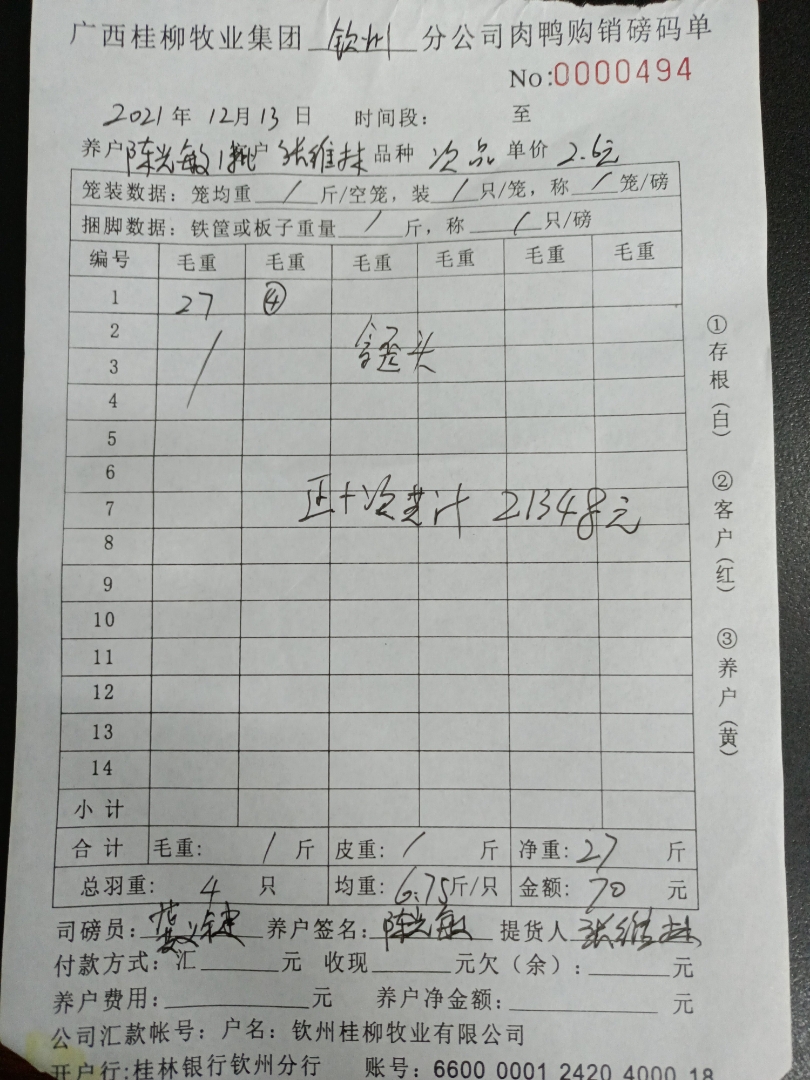 广西桂柳牧业集团 钦州 分公司肉鸭购销磅码单
No:0000494
2021年 12月13日 时间段: 至
养户 陈光敏 1批 户 张维林 品种 次品 单价 2.6元
笼装数据: 笼均重 / 斤/空笼, 装 / 只/笼, 称 / 笼/磅
捆脚数据: 铁筐或板子重量 / 斤, 称 / 只/磅
编号 毛重 毛重 毛重 毛重 毛重 毛重
1 27 ④
2
3 含歪头
4
5
6
7 正+次共计 21348元
8
9
10
11
12
13
14
小计
合计 毛重: / 斤 皮重: / 斤 净重: 27 斤
总羽重: 4 只 均重: 6.75斤/只 金额: 70 元
司磅员: 养户签名: 陈光敏 提货人 张维林
付款方式: 汇 元 收现 元欠(余): 元
养户费用: 元 养户净金额: 元
公司汇款帐号: 户名: 钦州桂柳牧业有限公司
开户行:桂林银行钦州分行 账号: 6600 0001 2420 4000 18
①存根(白) ②客户(红) ③养户(黄)